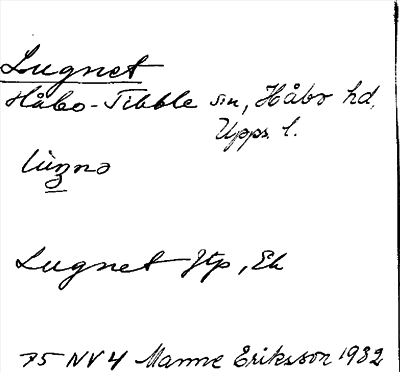 Lugnet
Håbo-Tibble sn, Håbo hd,
Upps. l.
Lugnet Jtp, Ek
75 NV 4 Manne Eriksson 1932